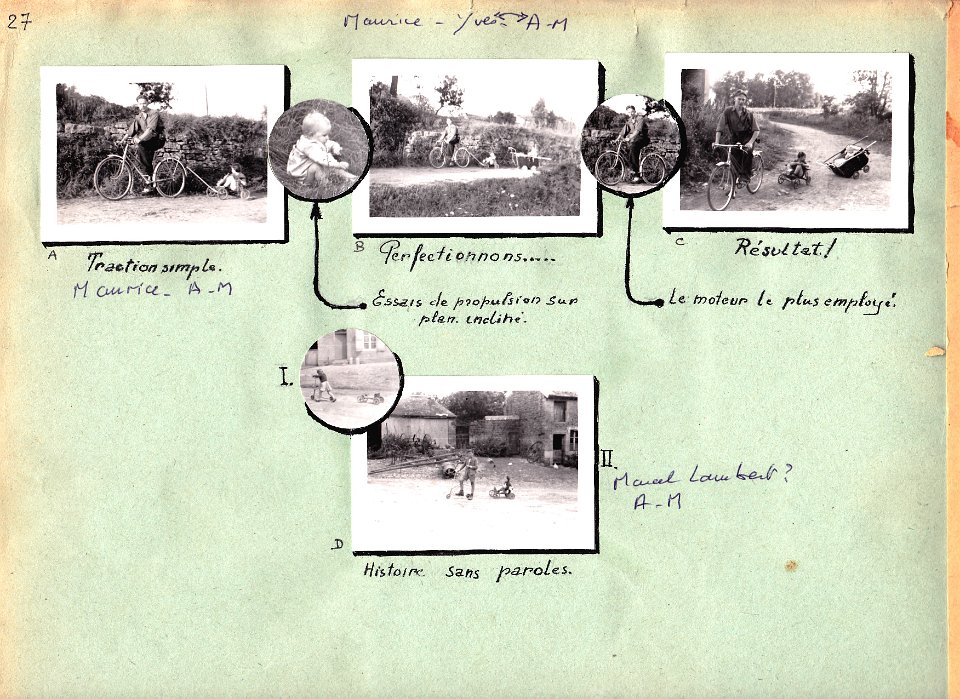 27
Maurice - Yves A-M
A
Traction simple.
Maurice - A-M
B
Perfectionnons.....
C
Résultat!
Essais de propulsion sur
plan incliné.
Le moteur le plus employé.
I.
II.
Marcel Lambert?
A-M
D
Histoire sans paroles.